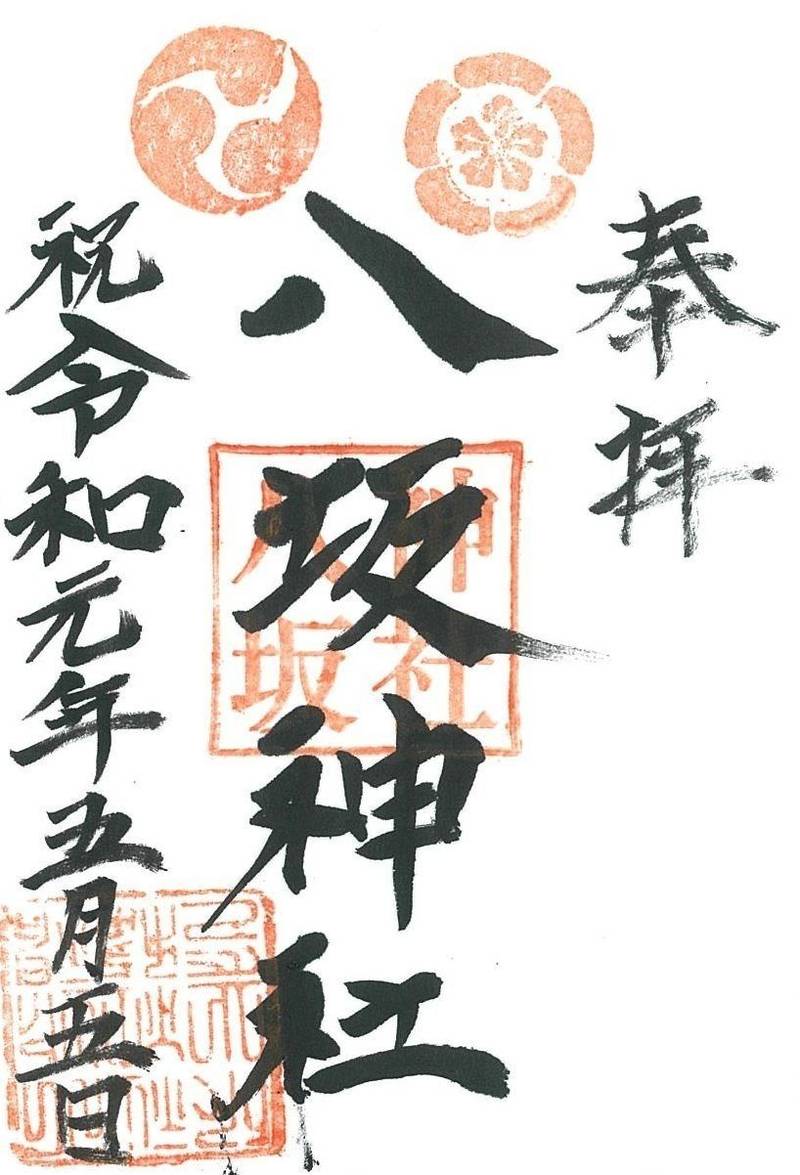 奉拝
八坂神社
祝令和元年五月五日
八坂
神社